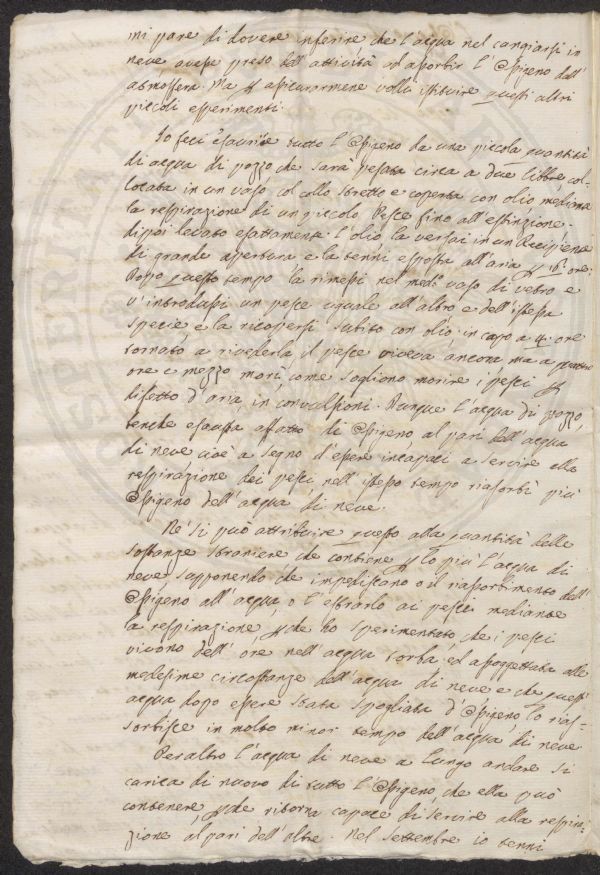 mi pare di dovere inferire che l'acqua nel cangiarsi in
neve avesse preso dell'attività ad assorbir l'Ossigeno dall'
atmosfera. Ma p assicurarmene volli istituire questi altri
piccoli esperimenti.
Io feci esaurire tutto l'Ossigeno da una piccola quantità
di acqua di pozzo che sarà pesata circa a due libbre col-
locata in un vaso col collo stretto e coperta con olio mediante
la respirazione di un piccolo Pesce fino all'estinzione.
di poi levato esattamente l'olio la versai in un Recipiente
di grande apertura e la tenni esposta all'aria p 16. ore:
Dopo questo tempo la rimessi nel med.o vaso di vetro e
v'introdussi un pesce uguale all'altro e dell'istessa
specie e la ricopersi subito con olio. in capo a 4. ore
tornato a rivederla il pesce viveva ancora ma a quattro
ore e mezzo morì, come sogliono morire i pesci p
difetto d'aria, in convulsioni. Dunque l'acqua di pozzo,
benche esausta affatto di Ossigeno al pari dell'acqua
di neve cioè a segno d'essere incapaci a servire alla
respirazione dei pesci nell'istesso tempo riassorbì più
Ossigeno dell'acqua di neve.
Nè si può attribuire questo alla quantità delle
sostanze straniere che contiene p lo più l'acqua di
neve supponendo che impediscano o il riassorbimento dell'
Ossigeno all'acqua o l'estrarlo ai pesci mediante
la respirazione, pche ho sperimentato, che i pesci
vivono dell'ore nell'acqua torba, ed assoggettata alle
medesime circostanze dell'acqua di neve e che quest'
acqua dopo essere stata spogliata d'Ossigeno lo rias-
sorbisce in molto minor tempo dell'acqua di neve
Peraltro l'acqua di neve a lungo andare si
carica di nuovo di tutto l'Ossigeno, che ella può
contenere, pche ritorna capace di servire alla respira-
zione al pari dell'altre. Nel settembre io tenni